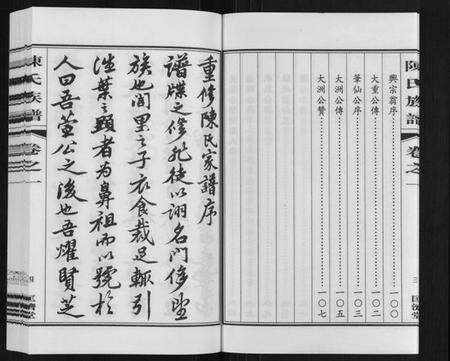 陳氏族譜
卷之一
三
興宗翁序……一〇〇
大重公傳……一〇二
筆仙公序……一〇三
大洲公傳……一〇五
大洲公贊……一〇七
重修陳氏家譜序
譜牒之修非徒以詡名門侈望
族也閭里之子衣食裁足輒引
海葉之顯者為鼻祖而以號於
人曰吾某公之後也吾耀賢芝
陳氏族譜
卷之一
四